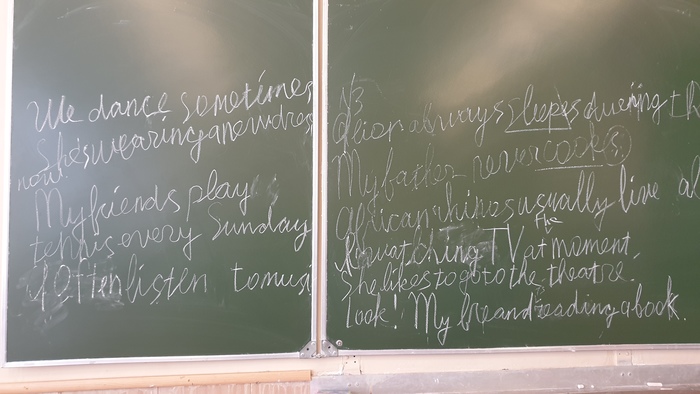 We dance sometimes
She's wearing a new dres
now.
My friends play
tennis every Sunday
I Often listen to musi
N3
A lion always sleeps during t D
My father never cooks
African rhinos usually live al
watching TV at the moment.
She likes to go to the theatre.
Look! My breand is reading a book.